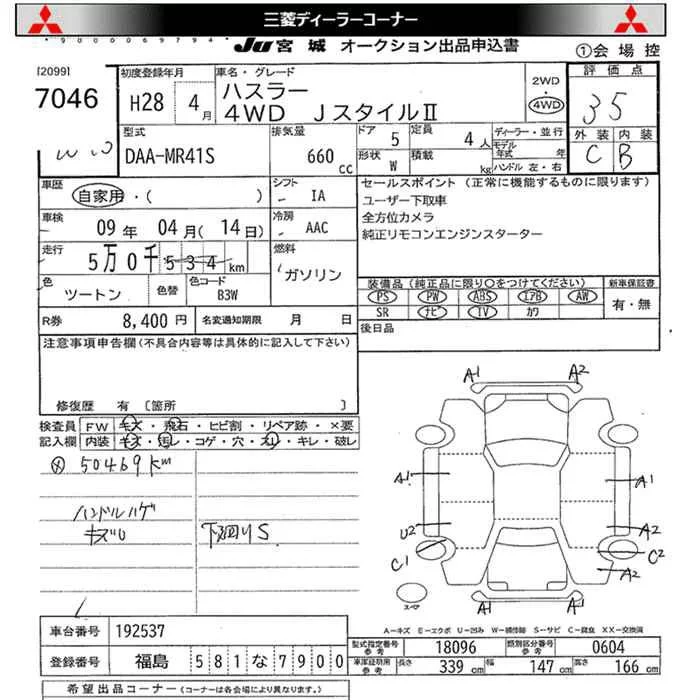 三菱ディーラーコーナー
9000069794
JU 宮城 オークション出品申込書
①会場控
[2099]
7046
初度登録年月
H28 4月
車名・グレード
ハスラー
4WD JスタイルⅡ
2WD
・
4WD
評価点
35
外装 内装
C B
型式
DAA-MR41S
排気量
660 cc
ドア 5 定員 4人
形状 W 積載 kg
ディーラー・並行
モデル年式 年
ハンドル 左・右
車歴
自家用・( )
シフト
IA
車検
09年 04月(14日)
冷房
AAC
走行
5万0千534km
燃料
ガソリン
色
ツートン
色替
色コード
B3W
R券 8,400円 名変通知期限 月 日
セールスポイント (正常に機能するものに限ります)
ユーザー下取車
全方位カメラ
純正リモコンエンジンスターター
装備品(純正品に限り○をつけてください)
PS PW ABS エアB AW
SR ナビ TV カワ
新車保証書
有・無
後日品
注意事項申告欄(不具合内容等は具体的に記入して下さい)
修復歴 有 〔箇所 〕
検査員記入欄
FW キズ・飛石・ヒビ割・リペア跡・×要
内装 キズ・汚レ・コゲ・穴・スレ・キレ・破レ
50469km
ハンドルハゲ
キズ
下回りS
A1 A2
A1 A1
U2 A2
C1 C2
A2
スペア
A1 A1
A-キズ E-エクボ U-凹み W-補修跡 S-サビ C-腐食 XX-交換済
車台番号 192537
登録番号 福島 581な7900
型式指定番号 参考 18096 類別区分番号 参考 0604
車庫証明用 参考 長さ 339cm 幅 147cm 高さ 166cm
希望出品コーナー(コーナーは各会場により異なります。)